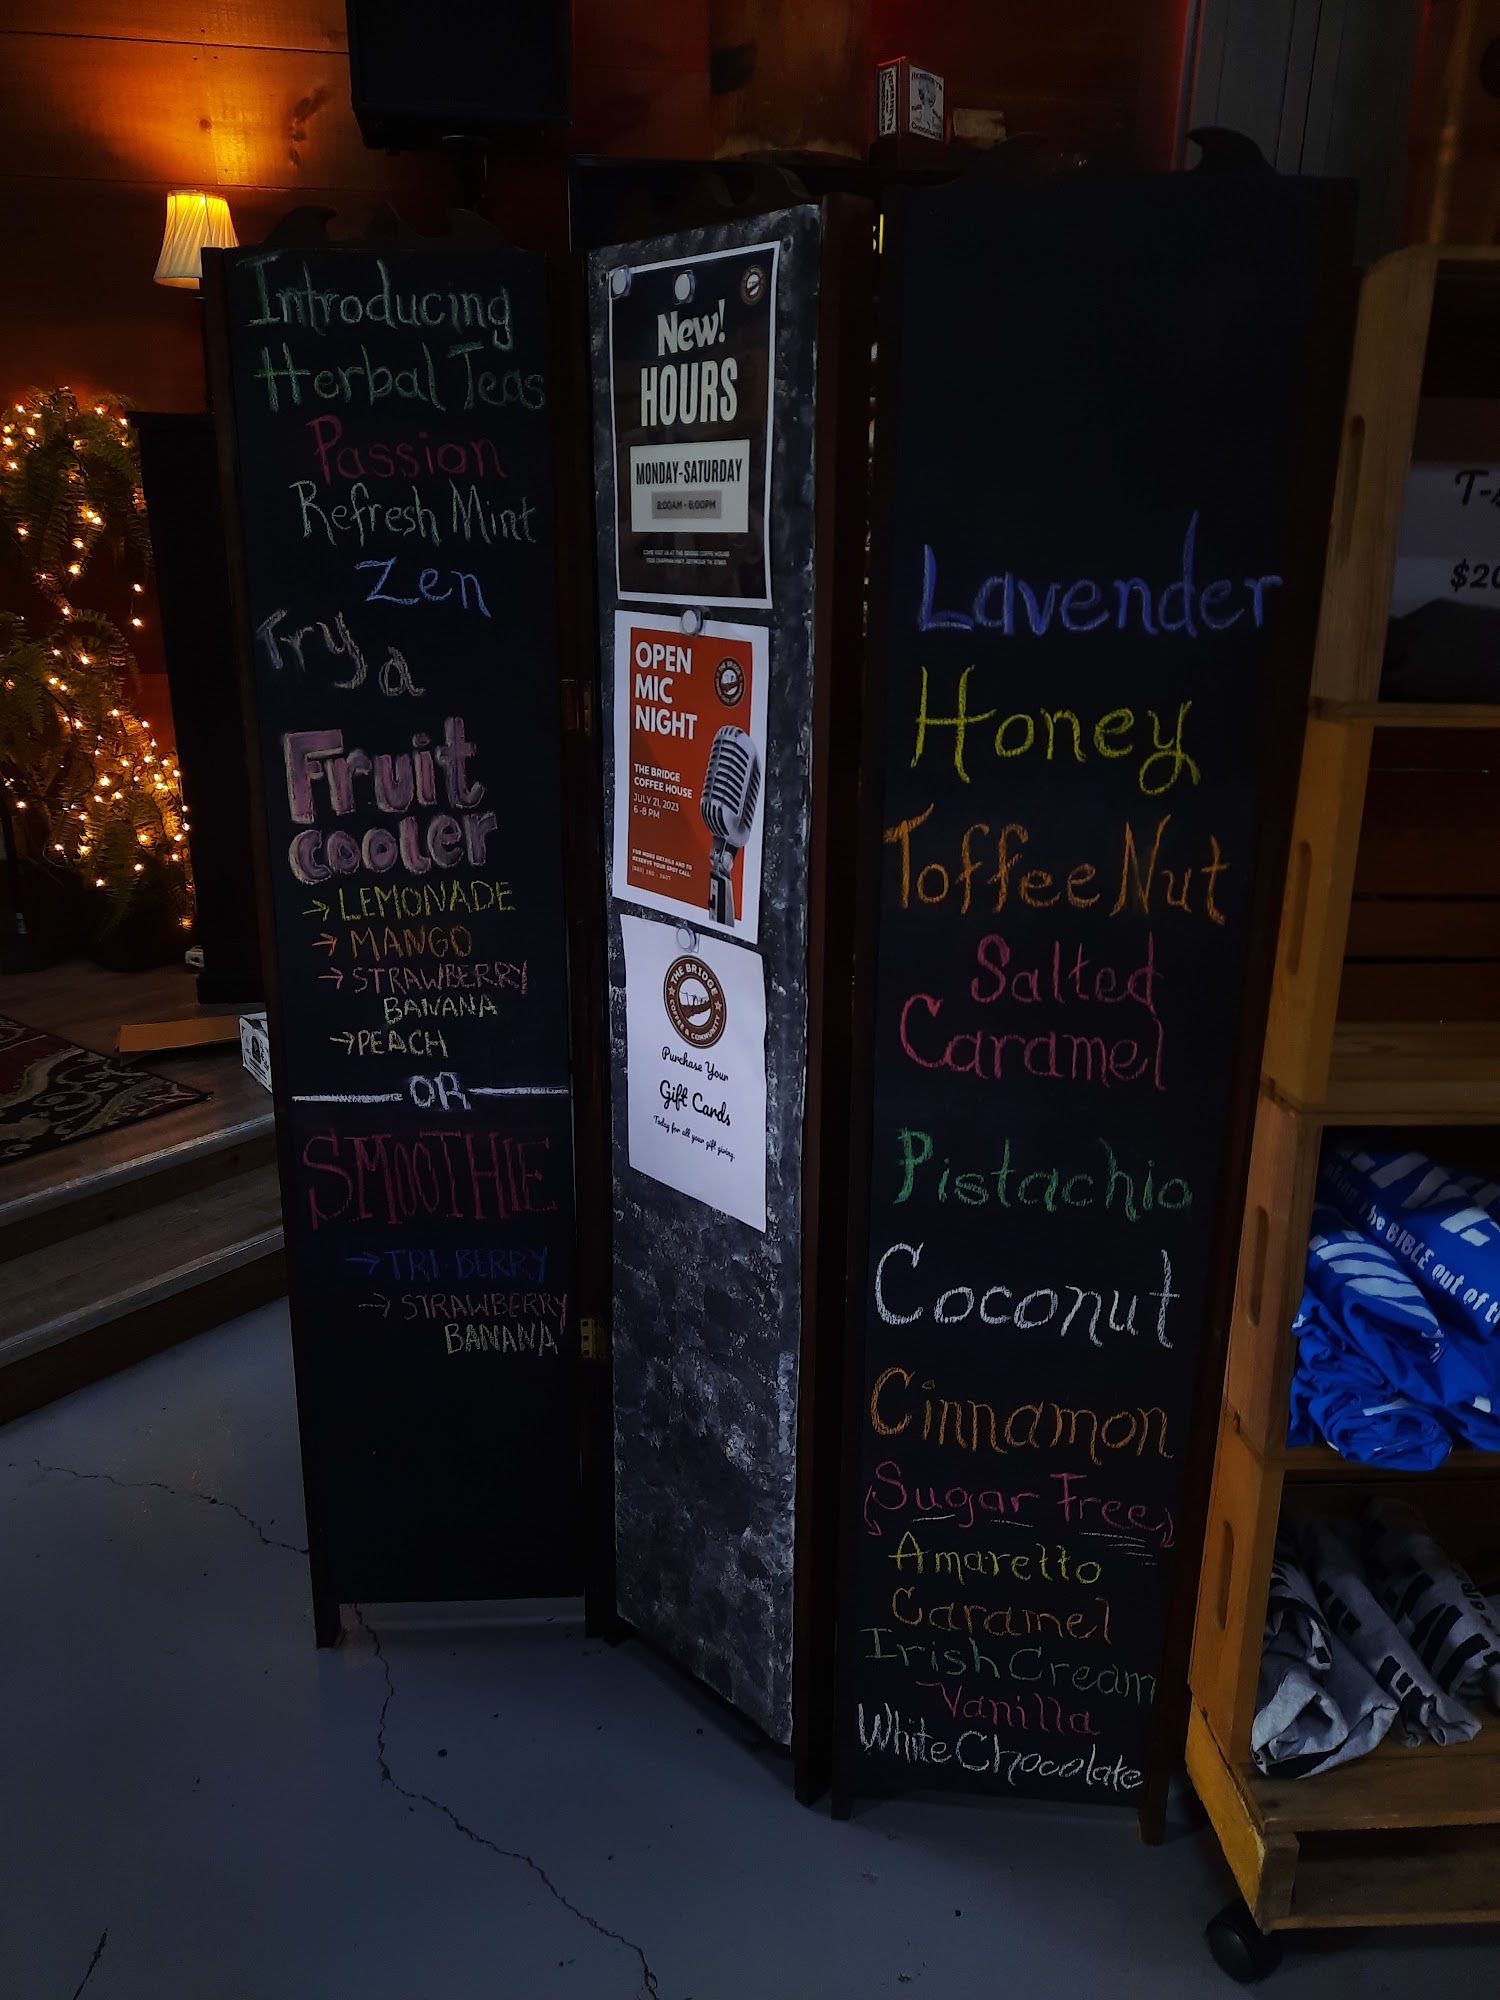 Introducing
Herbal Teas
Passion
Refresh Mint
Zen
Try a
Fruit
cooler
→ LEMONADE
→ MANGO
→ STRAWBERRY
BANANA
→ PEACH
OR
SMOOTHIE
→ TRI-BERRY
→ STRAWBERRY
BANANA
New!
HOURS
MONDAY-SATURDAY
8:00AM - 6:00PM
OPEN
MIC
NIGHT
THE BRIDGE
COFFEE HOUSE
JULY 21, 2023
6 -8 PM
FOR MORE DETAILS AND TO
RESERVE YOUR SPOT CALL:
THE BRIDGE
COFFEE & COMMUNITY
Purchase Your
Gift Cards
Today for all your gift giving.
Lavender
Honey
Toffee Nut
Salted
Caramel
Pistachio
Coconut
Cinnamon
Sugar Free
Amaretto
Caramel
Irish Cream
Vanilla
White Chocolate
$20
the BIBLE out of th